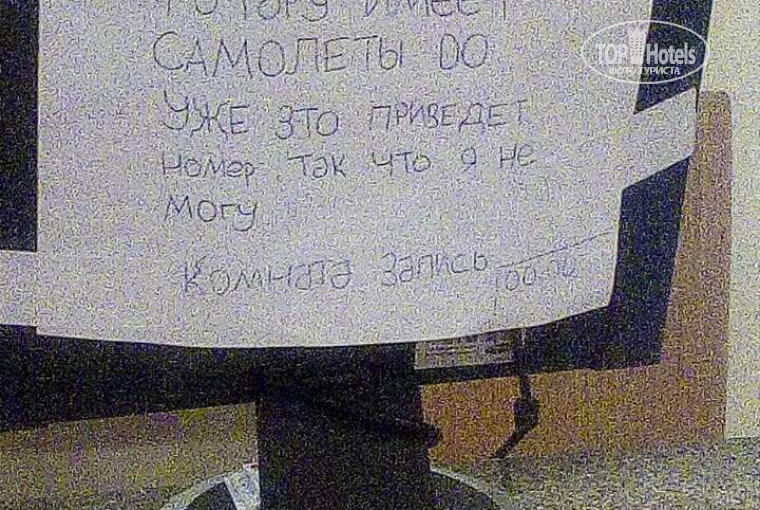 TOP Hotels
ФОТО ТУРИСТА
ТОТАРУ ИМЕЕТ
САМОЛЕТЫ DO
УЖЕ ЭТО ПРИВЕДЕТ
номер так что я не
могу
Комната запись